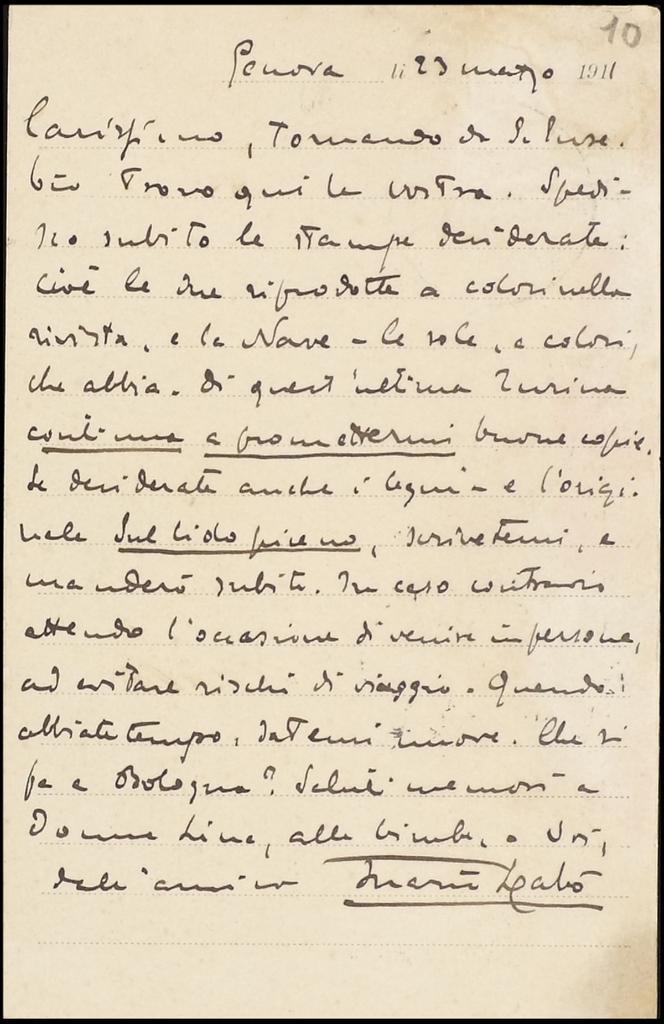 10
Genova li 23 marzo 1911
Carissimo, tornando da S. Euse-
bio trovo qui la vostra. Spedi-
sco subito le stampe desiderate:
cioè le due riprodotte a colori nella
rivista, e la Nave - le sole, a colori,
che abbia. Di quest'ultima
continua a promettermi buone copie.
Se desiderate anche i legni - e l'origi-
nale Sul lido piceno, scrivetemi, e
manderò subito. In caso contrario
attendo l'occasione di venire in persona,
ad evitare rischi di viaggio. Quando
abbiate tempo, datemi nuove. Che si
fa a Bologna? Saluti memori a
Donna Lina, alle bimbe, a Voi,
dall'amico Mario Labò